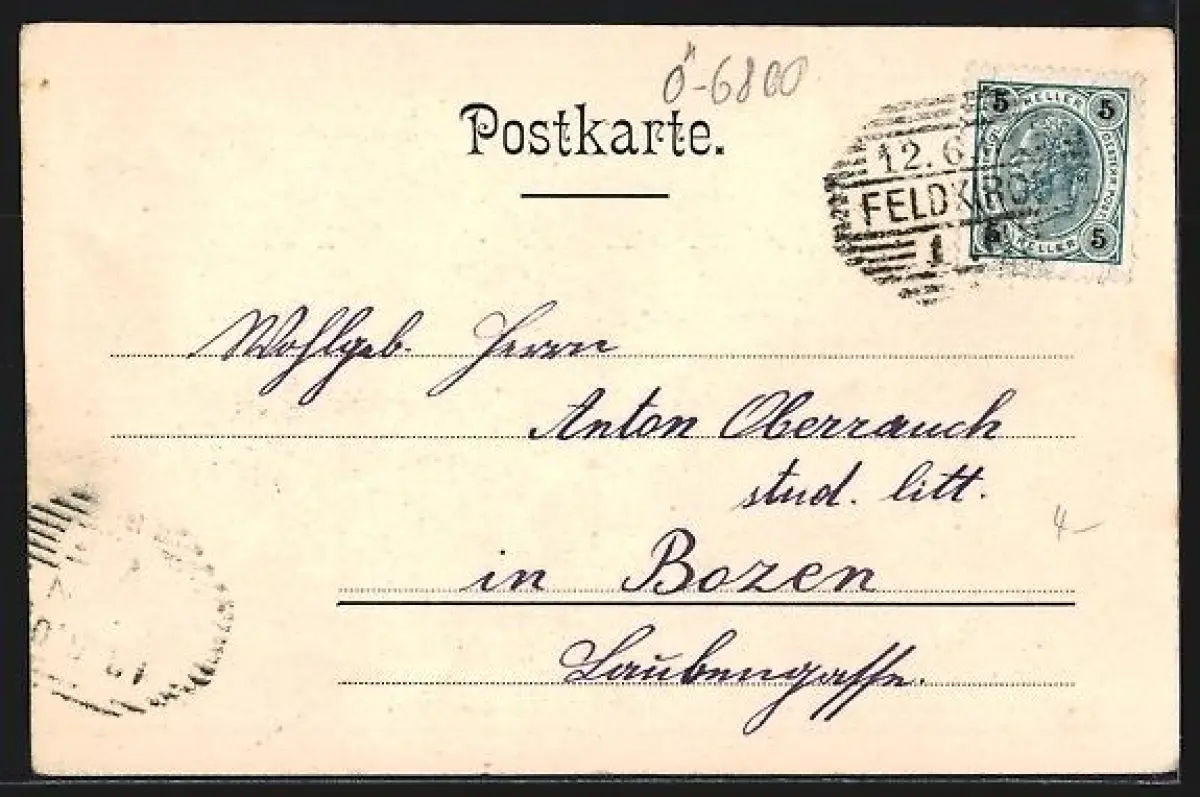 Ö-6800
Postkarte.
5 HELLER 5
12.6.
FELDKIRCH
1
5 HELLER 5
Wohlgeb. Herrn
Anton Oberrauch
stud. litt.
4-
in Bozen
Laubengasse.